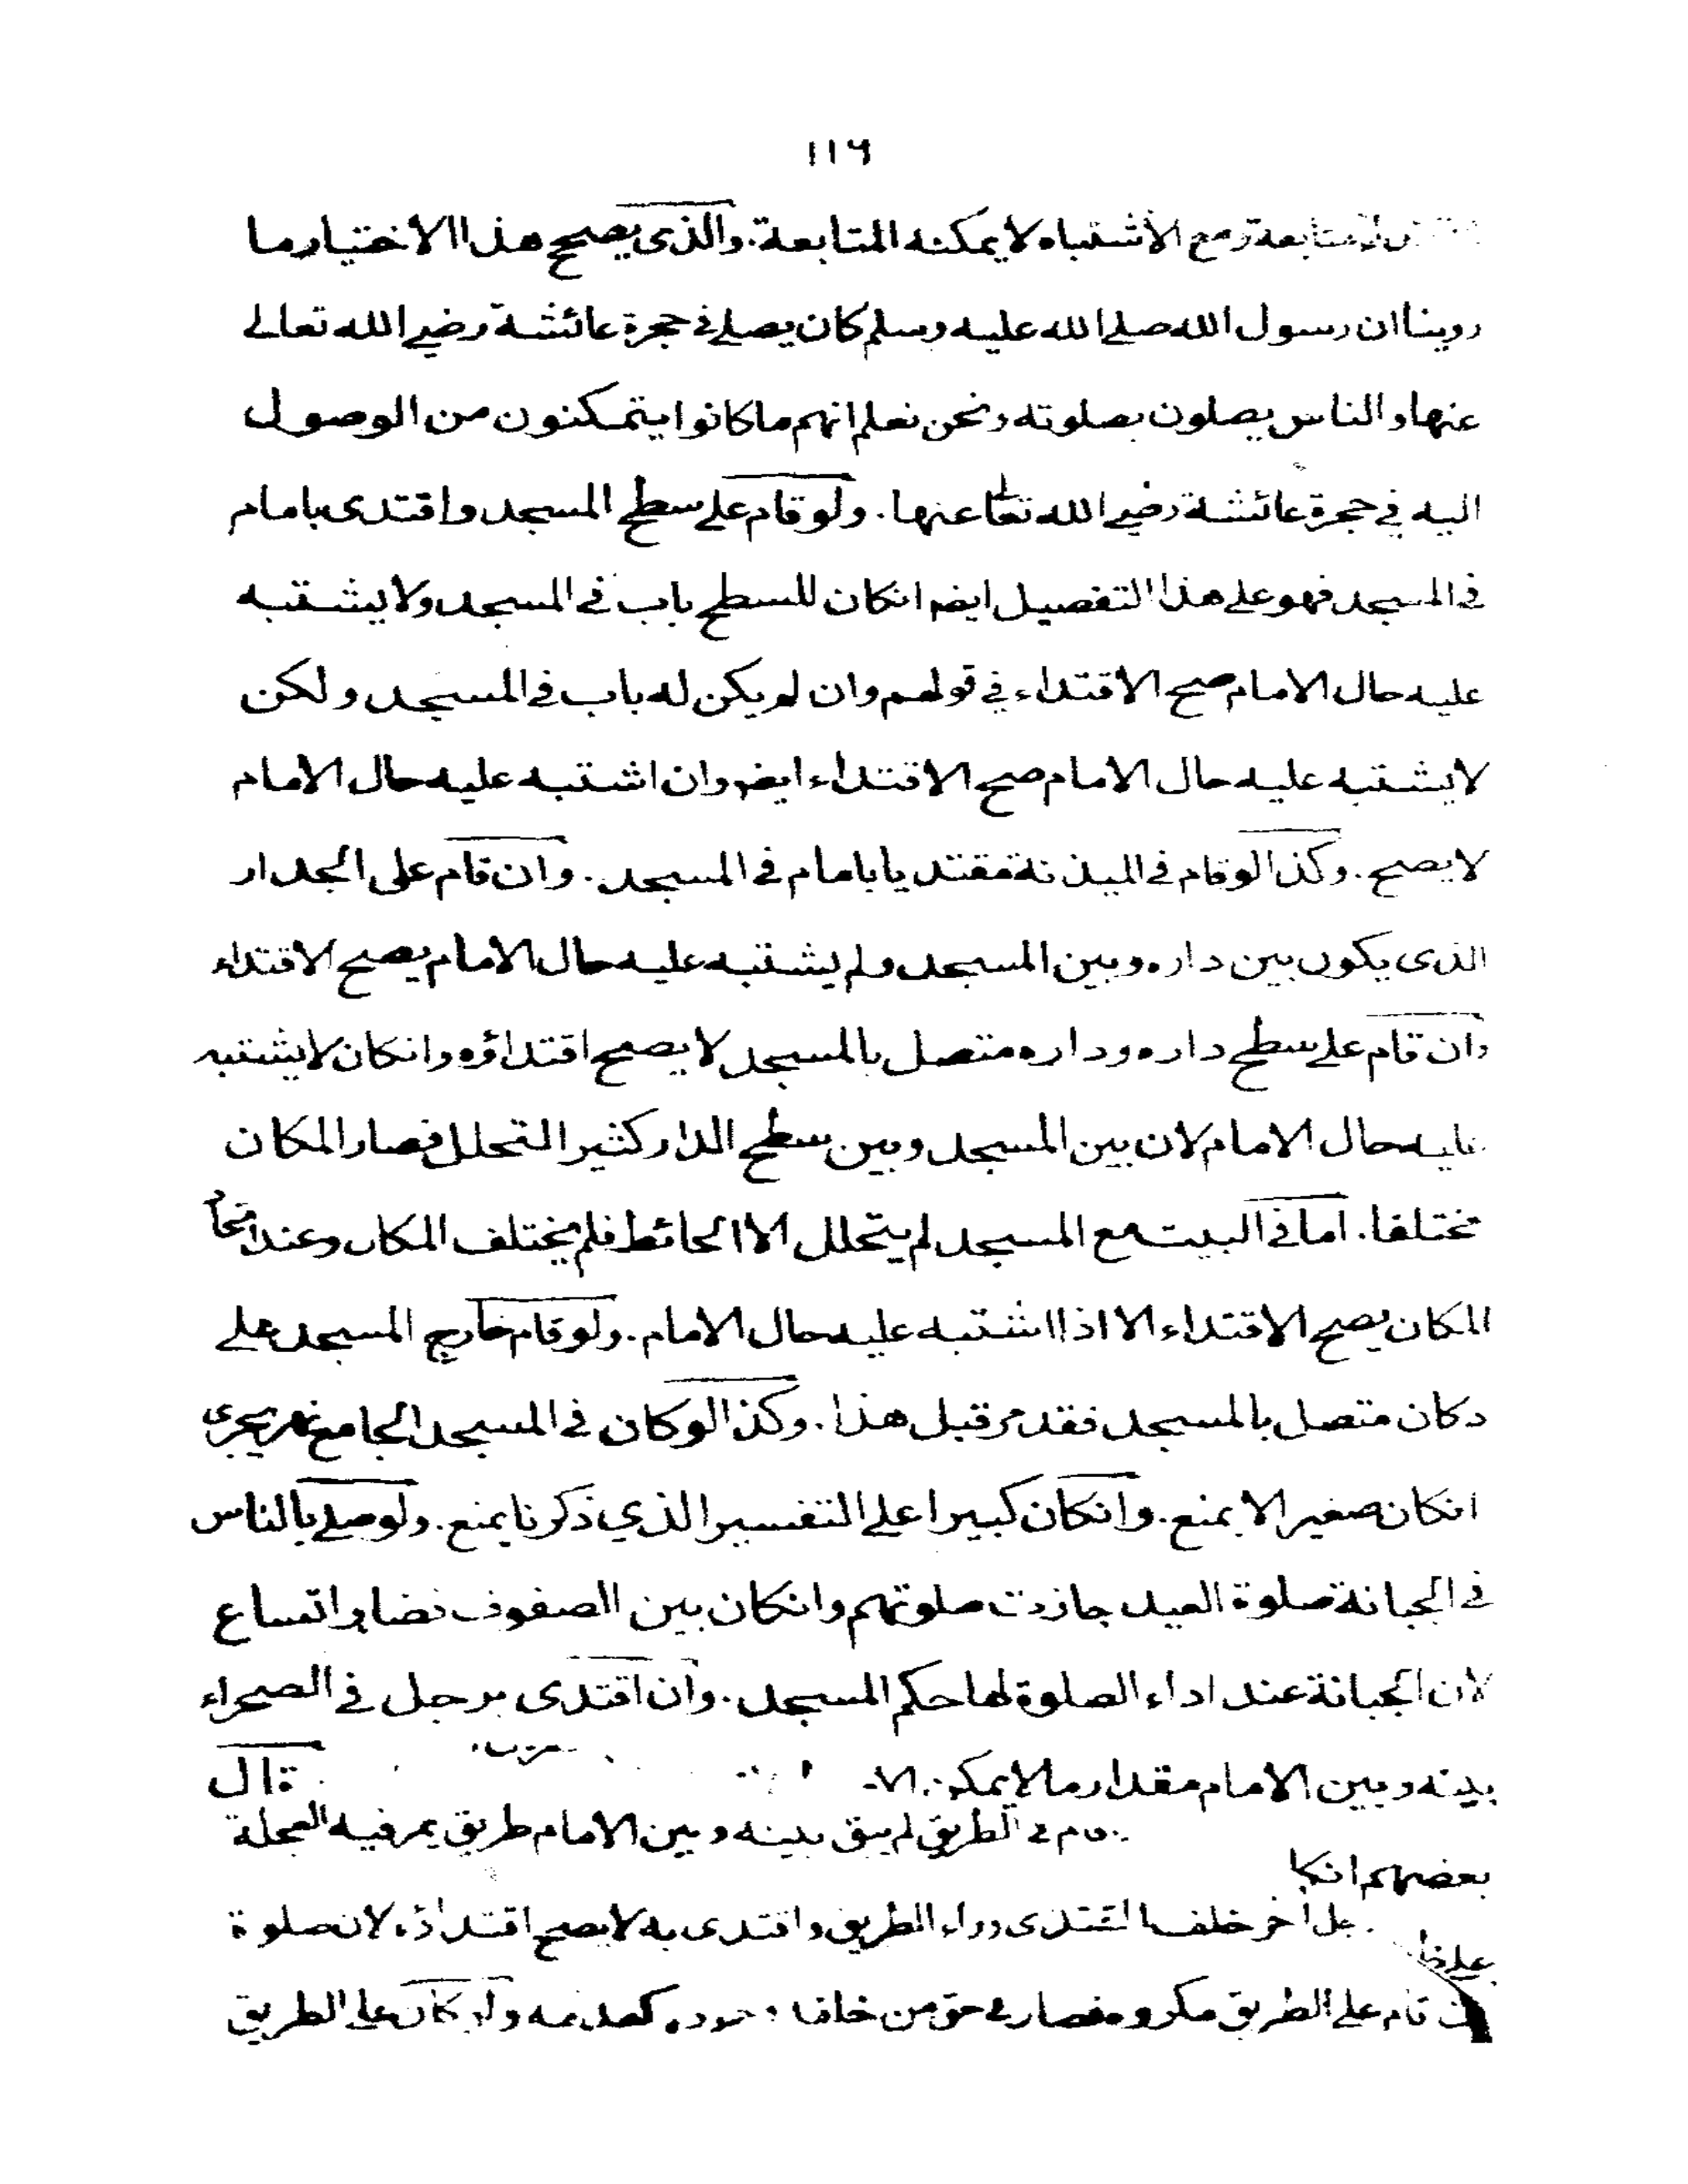 ١١٦
المتابعة ومع الاشتباه لا يمكنه المتابعة. والذى يصحح هذا الاختيار ما
روينا ان رسول الله صلے الله عليه وسلم كان يصلے فے حجرة عائشة رضے الله تعالے
عنها والناس يصلون بصلوته ونحن نعلم انهم ما كانوا يتمكنون من الوصول
اليه فے حجرة عائشة رضے الله تعا عنها. ولو قام علے سطح المسجد واقتدى بامام
فے المسجد فهو علے هذا التفصيل ايضم انكان للسطح باب فے المسجد ولا يشتبه
عليه حال الامام صح الاقتداء فے قولهم وان لم يكن له باب فے المسجد ولكن
لا يشتبه عليه حال الامام صح الاقتداء ايضم وان اشتبه عليه حال الامام
لا يصح. وكذا لو قام فے الميذنة مقتديا بامام فے المسجد. وان قام على الجدار
الذى يكون بين داره وبين المسجد ولم يشتبه عليه حال الامام يصح الاقتداء
وان قام علے سطح داره وداره متصل بالمسجد لا يصح اقتداؤه وانكان لا يشتبه
عليه حال الامام لان بين المسجد وبين سطح الدار كثير التخلل فصار المكان
مختلفا. اما فے البيت مع المسجد لم يتخلل الا الحائط فلم يختلف المكان وعند اتحاد
المكان يصح الاقتداء الا اذا اشتبه عليه حال الامام. ولو قام خارج المسجد علے
دكان متصل بالمسجد فقد مر قبل هذا. وكذا لو كان فے المسجد الجامع نهر يجرى
انكان صغيرا لا يمنع. وانكان كبيرا علے التفسير الذي ذكرنا يمنع. ولو صلے بالناس
فے الجبانة صلوة العيد جازت صلوتهم وانكان بين الصفوف فضا واتساع
لان الجبانة عند اداء الصلوة لها حكم المسجد. وان اقتدى برجل فے الصحراء
بينه وبين الامام مقدار ما لا يمكن قال
قام فے الطريق لم يبق بينه وبين الامام طريق يمر فيه العجلة
بعضهم انكا
اخر خلف المقتدى وراء الطريق واقتدى به لا يصح اقتداؤه لان صلوة
علے
قام علے الطريق مكروه فصار فے حق من خلفه وجوده كعدمه ولو كان علے الطريق